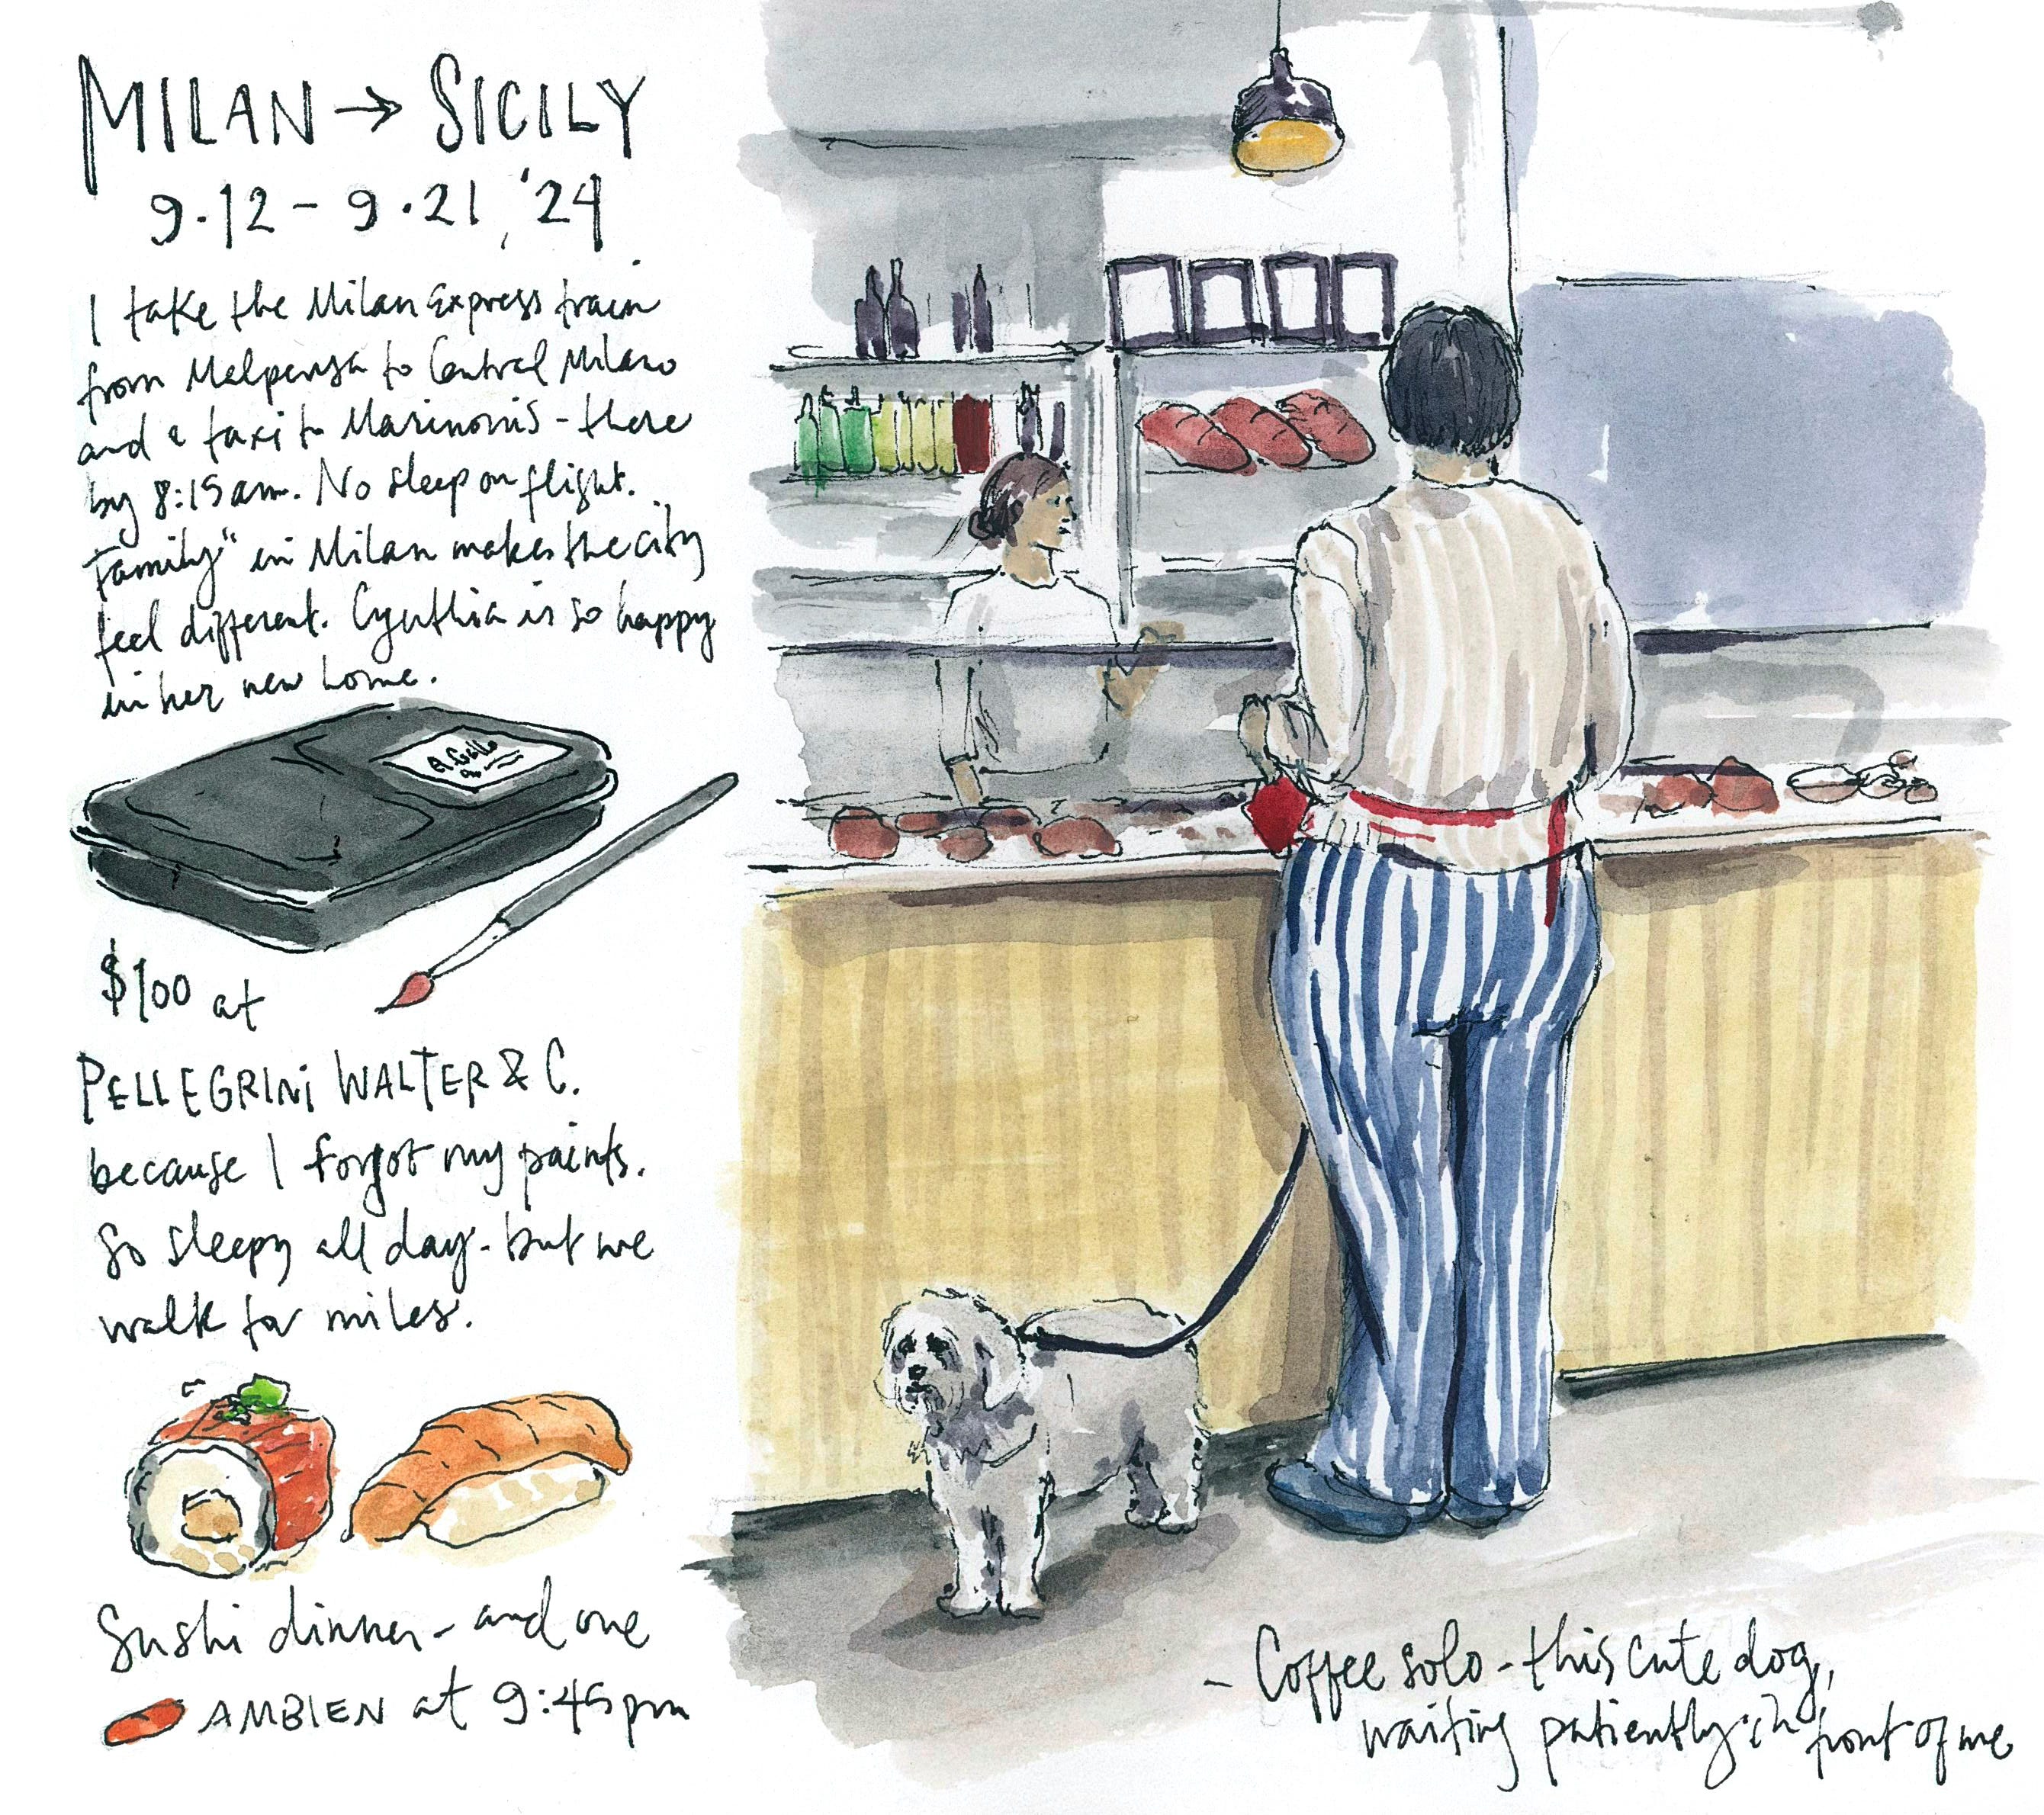 MILAN → SICILY
9.12 - 9.21, '24
I take the Milan Express train
from Malpensa to Central Milano
and a taxi to Marinoni's - there
by 8:15am. No sleep on flight.
"Family" in Milan makes the city
feel different. Cynthia is so happy
in her new home.
A. Gallo
$100 at
PELLEGRINI WALTER & C.
because I forgot my paints.
So sleepy all day - but we
walk for miles.
Sushi dinner - and one
AMBIEN at 9:45pm
- Coffee solo - this cute dog,
waiting patiently in front of me